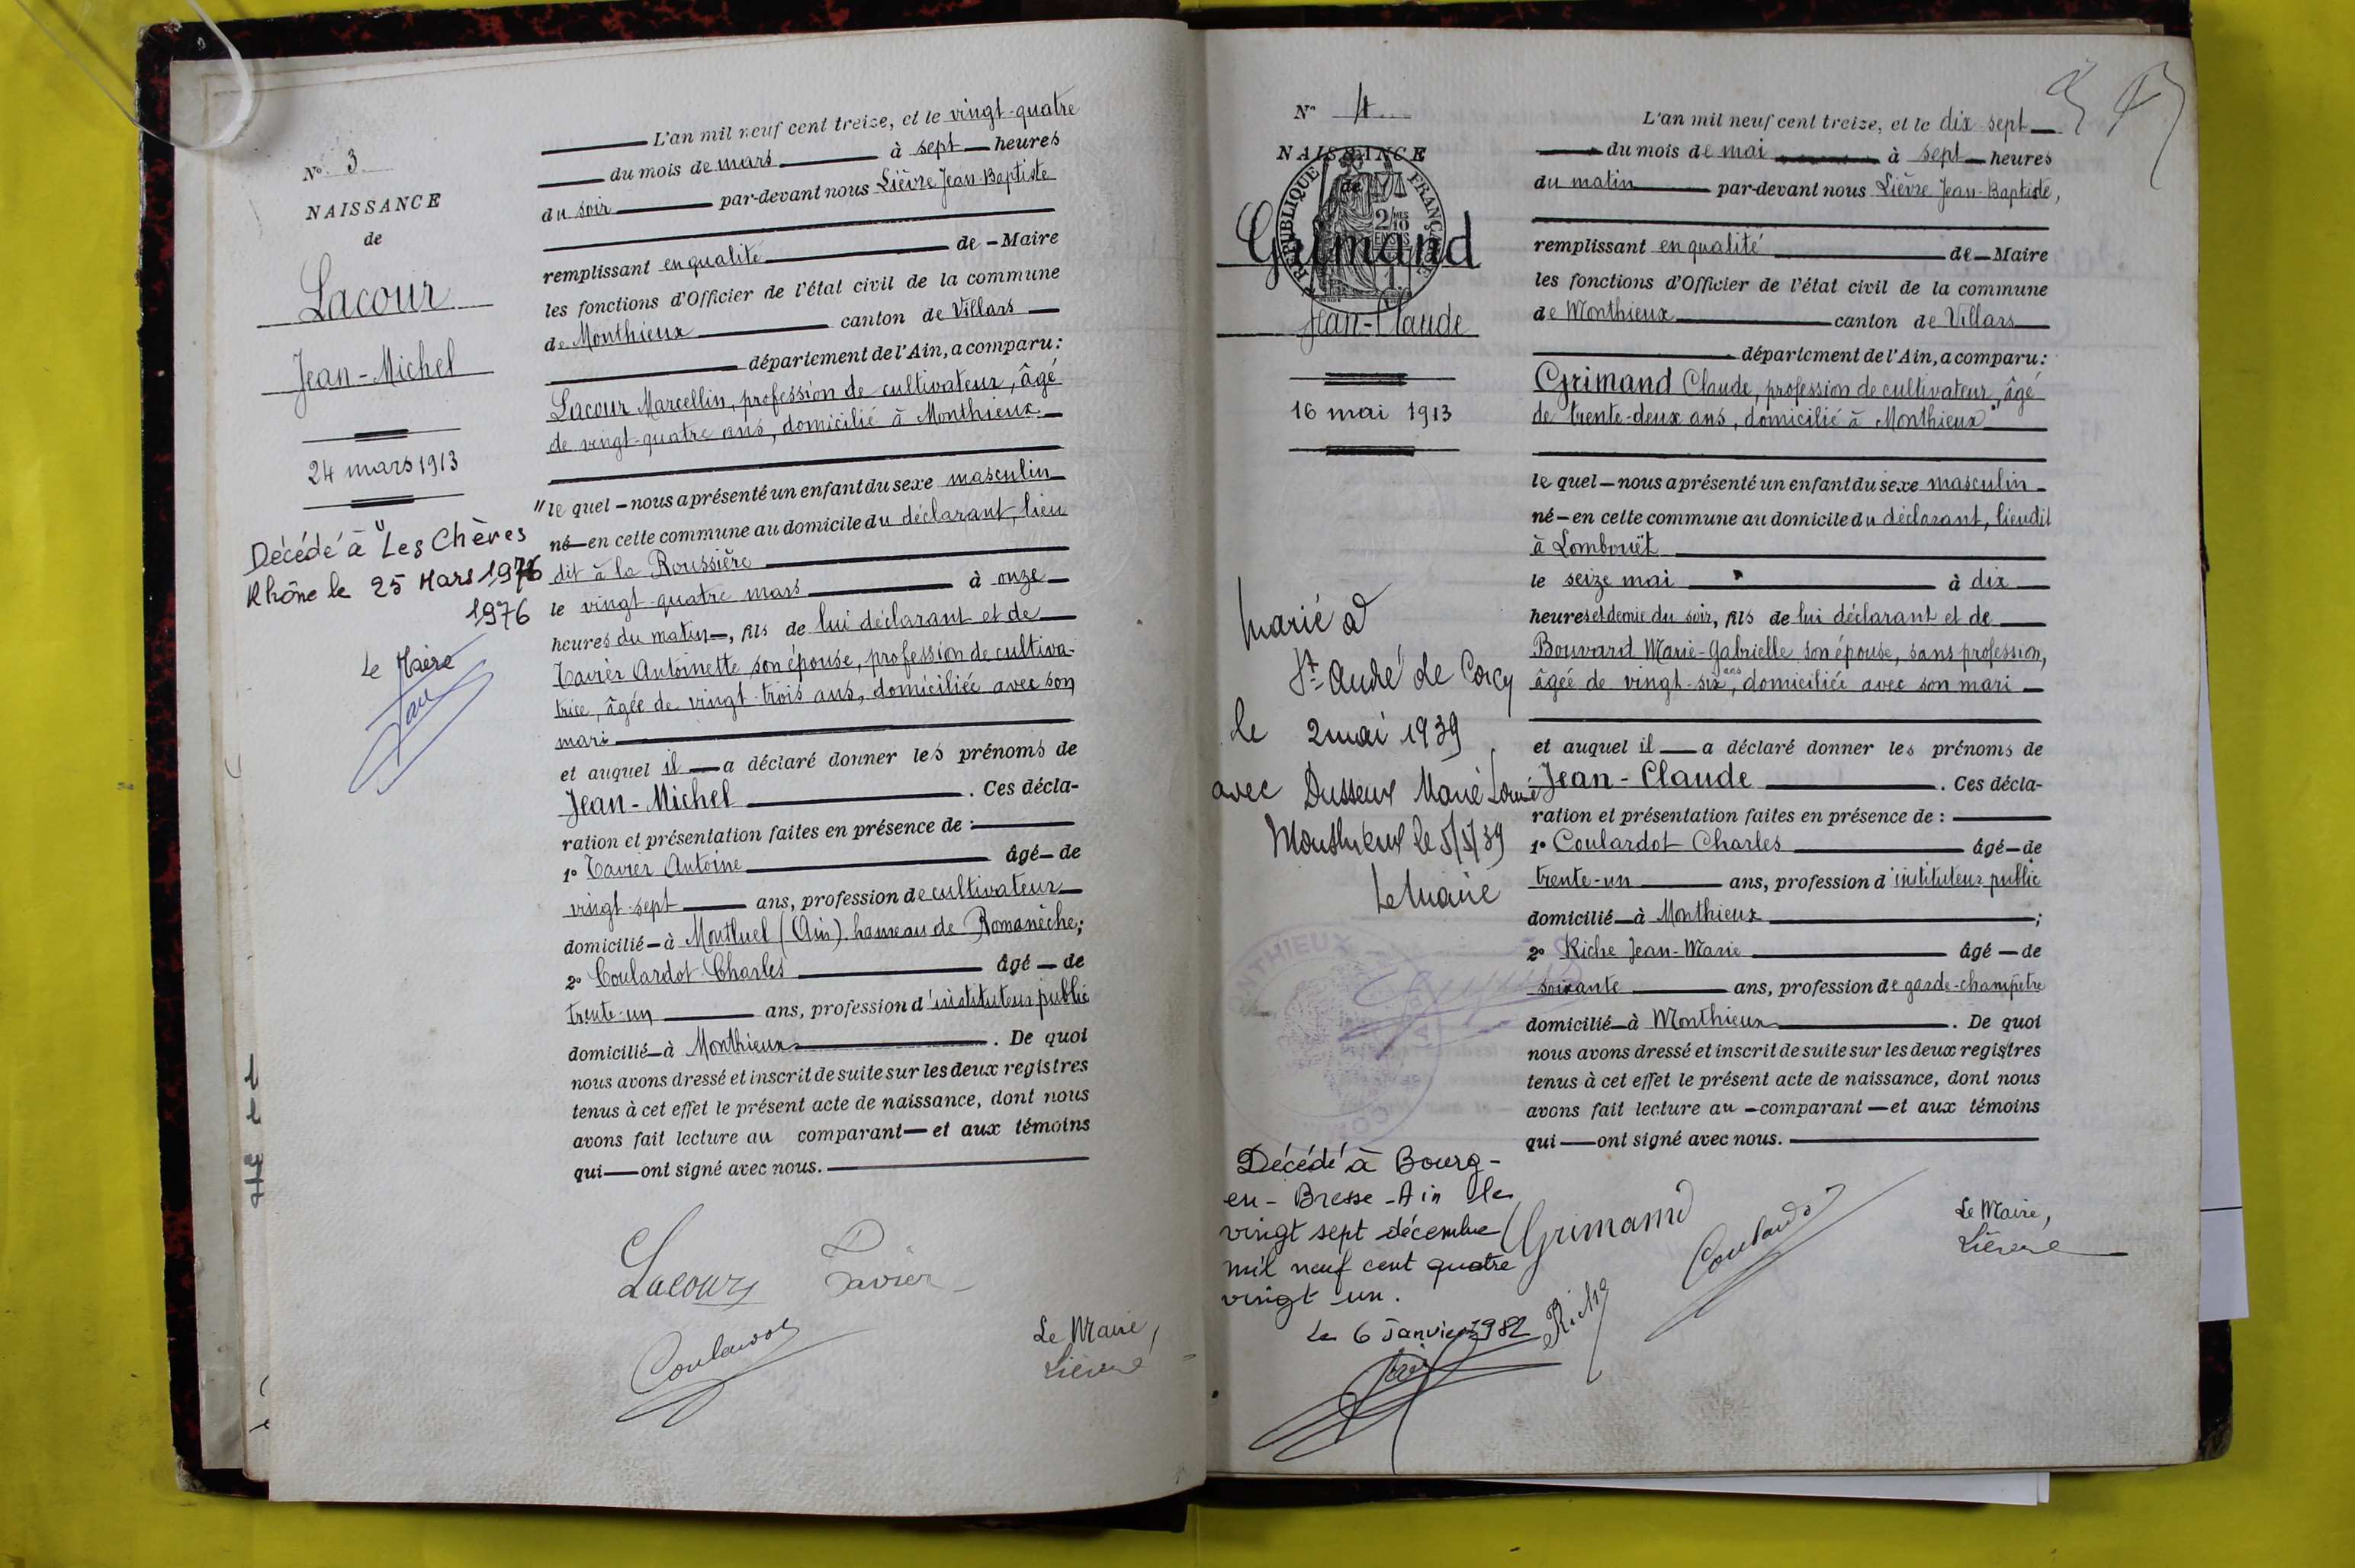 N° 3
NAISSANCE
de
Lacour
Jean-Michel
24 mars 1913
Décédé à "Les Chères"
Rhône le 25 Mars 1976
1976
Le Maire
L'an mil neuf cent treize, et le vingt-quatre
du mois de mars à sept heures
du soir par-devant nous Lièvre Jean-Baptiste
remplissant en qualité de Maire
les fonctions d'Officier de l'état civil de la commune
de Monthieux canton de Villars
département de l'Ain, a comparu :
Lacour Marcellin, profession de cultivateur, âgé
de vingt-quatre ans, domicilié à Monthieux.
le quel nous a présenté un enfant du sexe masculin
né en cette commune au domicile du déclarant, lieu
dit à la Roussière
le vingt-quatre mars à onze
heures du matin, fils de lui déclarant et de
Tavier Antoinette son épouse, profession de cultiva-
trice, âgée de vingt-trois ans, domiciliée avec son
mari
et auquel il a déclaré donner les prénoms de
Jean-Michel. Ces décla-
ration et présentation faites en présence de :
1° Tavier Antoine âgé de
vingt-sept ans, profession de cultivateur
domicilié à Montluel (Ain). hameau de Romanèche ;
2° Coulardot Charles âgé de
trente-un ans, profession d'instituteur public
domicilié à Monthieux. De quoi
nous avons dressé et inscrit de suite sur les deux registres
tenus à cet effet le présent acte de naissance, dont nous
avons fait lecture au comparant et aux témoins
qui ont signé avec nous.
Lacour Tavier
Coulardot
Le Maire,
Lièvre
N° 4
NAISSANCE
de
RÉPUBLIQUE FRANÇAISE
2/10MES
EN SUS
Grimand
Jean-Claude
16 mai 1913
Marié à
St André de Corcy
le 2 mai 1939
avec Dusseux Marie Louise
Monthieux le 5/5/39
Le Maire
MONTHIEUX
Décédé à Bourg-
en-Bresse - Ain le
vingt sept décembre
mil neuf cent quatre
vingt un.
Le 6 Janvier 1982
L'an mil neuf cent treize, et le dix sept
du mois de mai à sept heures
du matin par-devant nous Lièvre Jean-Baptiste,
remplissant en qualité de Maire
les fonctions d'Officier de l'état civil de la commune
de Monthieux canton de Villars
département de l'Ain, a comparu :
Grimand Claude, profession de cultivateur, âgé
de trente-deux ans, domicilié à Monthieux
le quel nous a présenté un enfant du sexe masculin
né en cette commune au domicile du déclarant, lieu dit
à Lombouët
le seize mai à dix
heures et demie du soir, fils de lui déclarant et de
Bouvard Marie-Gabrielle son épouse, sans profession,
âgée de vingt-six ans, domiciliée avec son mari
et auquel il a déclaré donner les prénoms de
Jean-Claude. Ces décla-
ration et présentation faites en présence de :
1° Coulardot Charles âgé de
trente-un ans, profession d'instituteur public
domicilié à Monthieux ;
2° Riche Jean-Marie âgé de
soixante ans, profession de garde-champêtre
domicilié à Monthieux. De quoi
nous avons dressé et inscrit de suite sur les deux registres
tenus à cet effet le présent acte de naissance, dont nous
avons fait lecture au comparant et aux témoins
qui ont signé avec nous.
Grimand
Coulardot
Riche
Le Maire,
Lièvre